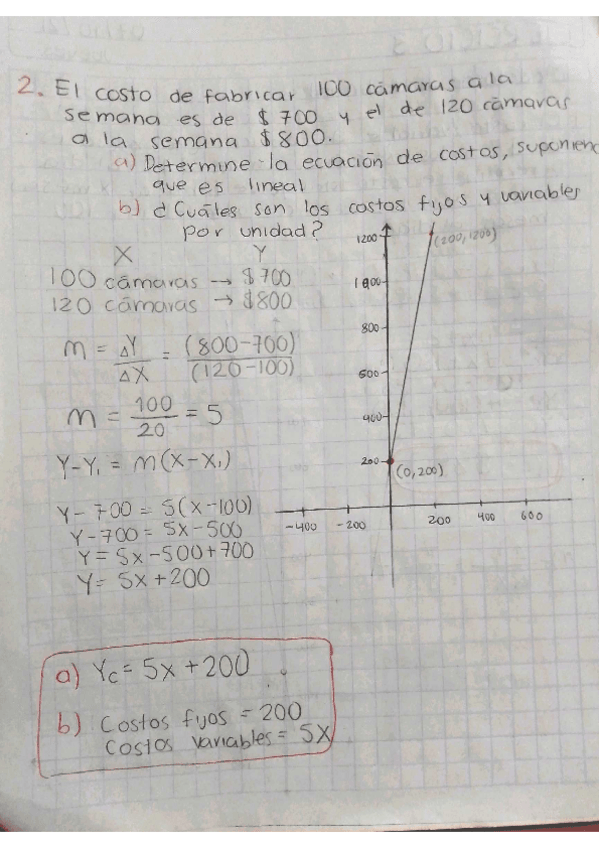 2. El costo de fabricar 100 cámaras a la
semana es de $700 y el de 120 cámaras
a la semana $800.
a) Determine la ecuación de costos, suponien
que es lineal
b) ¿Cuáles son los costos fijos y variables
por unidad?
X Y
100 cámaras → $700
120 cámaras → $800
m = ΔY/ΔX = (800-700)/(120-100)
m = 100/20 = 5
Y-Y₁ = m(X-X₁)
Y-700 = 5(X-100)
Y-700 = 5X-500
Y = 5X-500+700
Y = 5X+200
1200
(200,1200)
1000
800
600
400
200
(0,200)
-400 -200 200 400 600
a) Yc = 5X+200
b) Costos fijos = 200
Costos variables = 5X